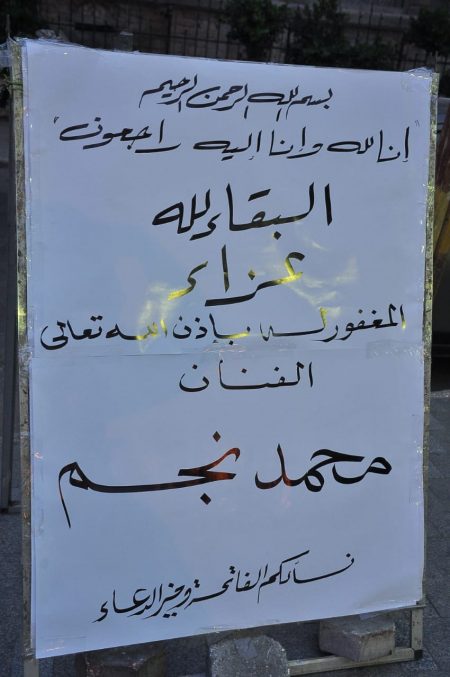 بسم الله الرحمن الرحيم
"إنا لله وإنا إليه راجعون"
البقاء لله
عزاء
المغفور له بإذن الله تعالى
الفنان
محمد نجم
نسألكم الفاتحة وخير الدعاء